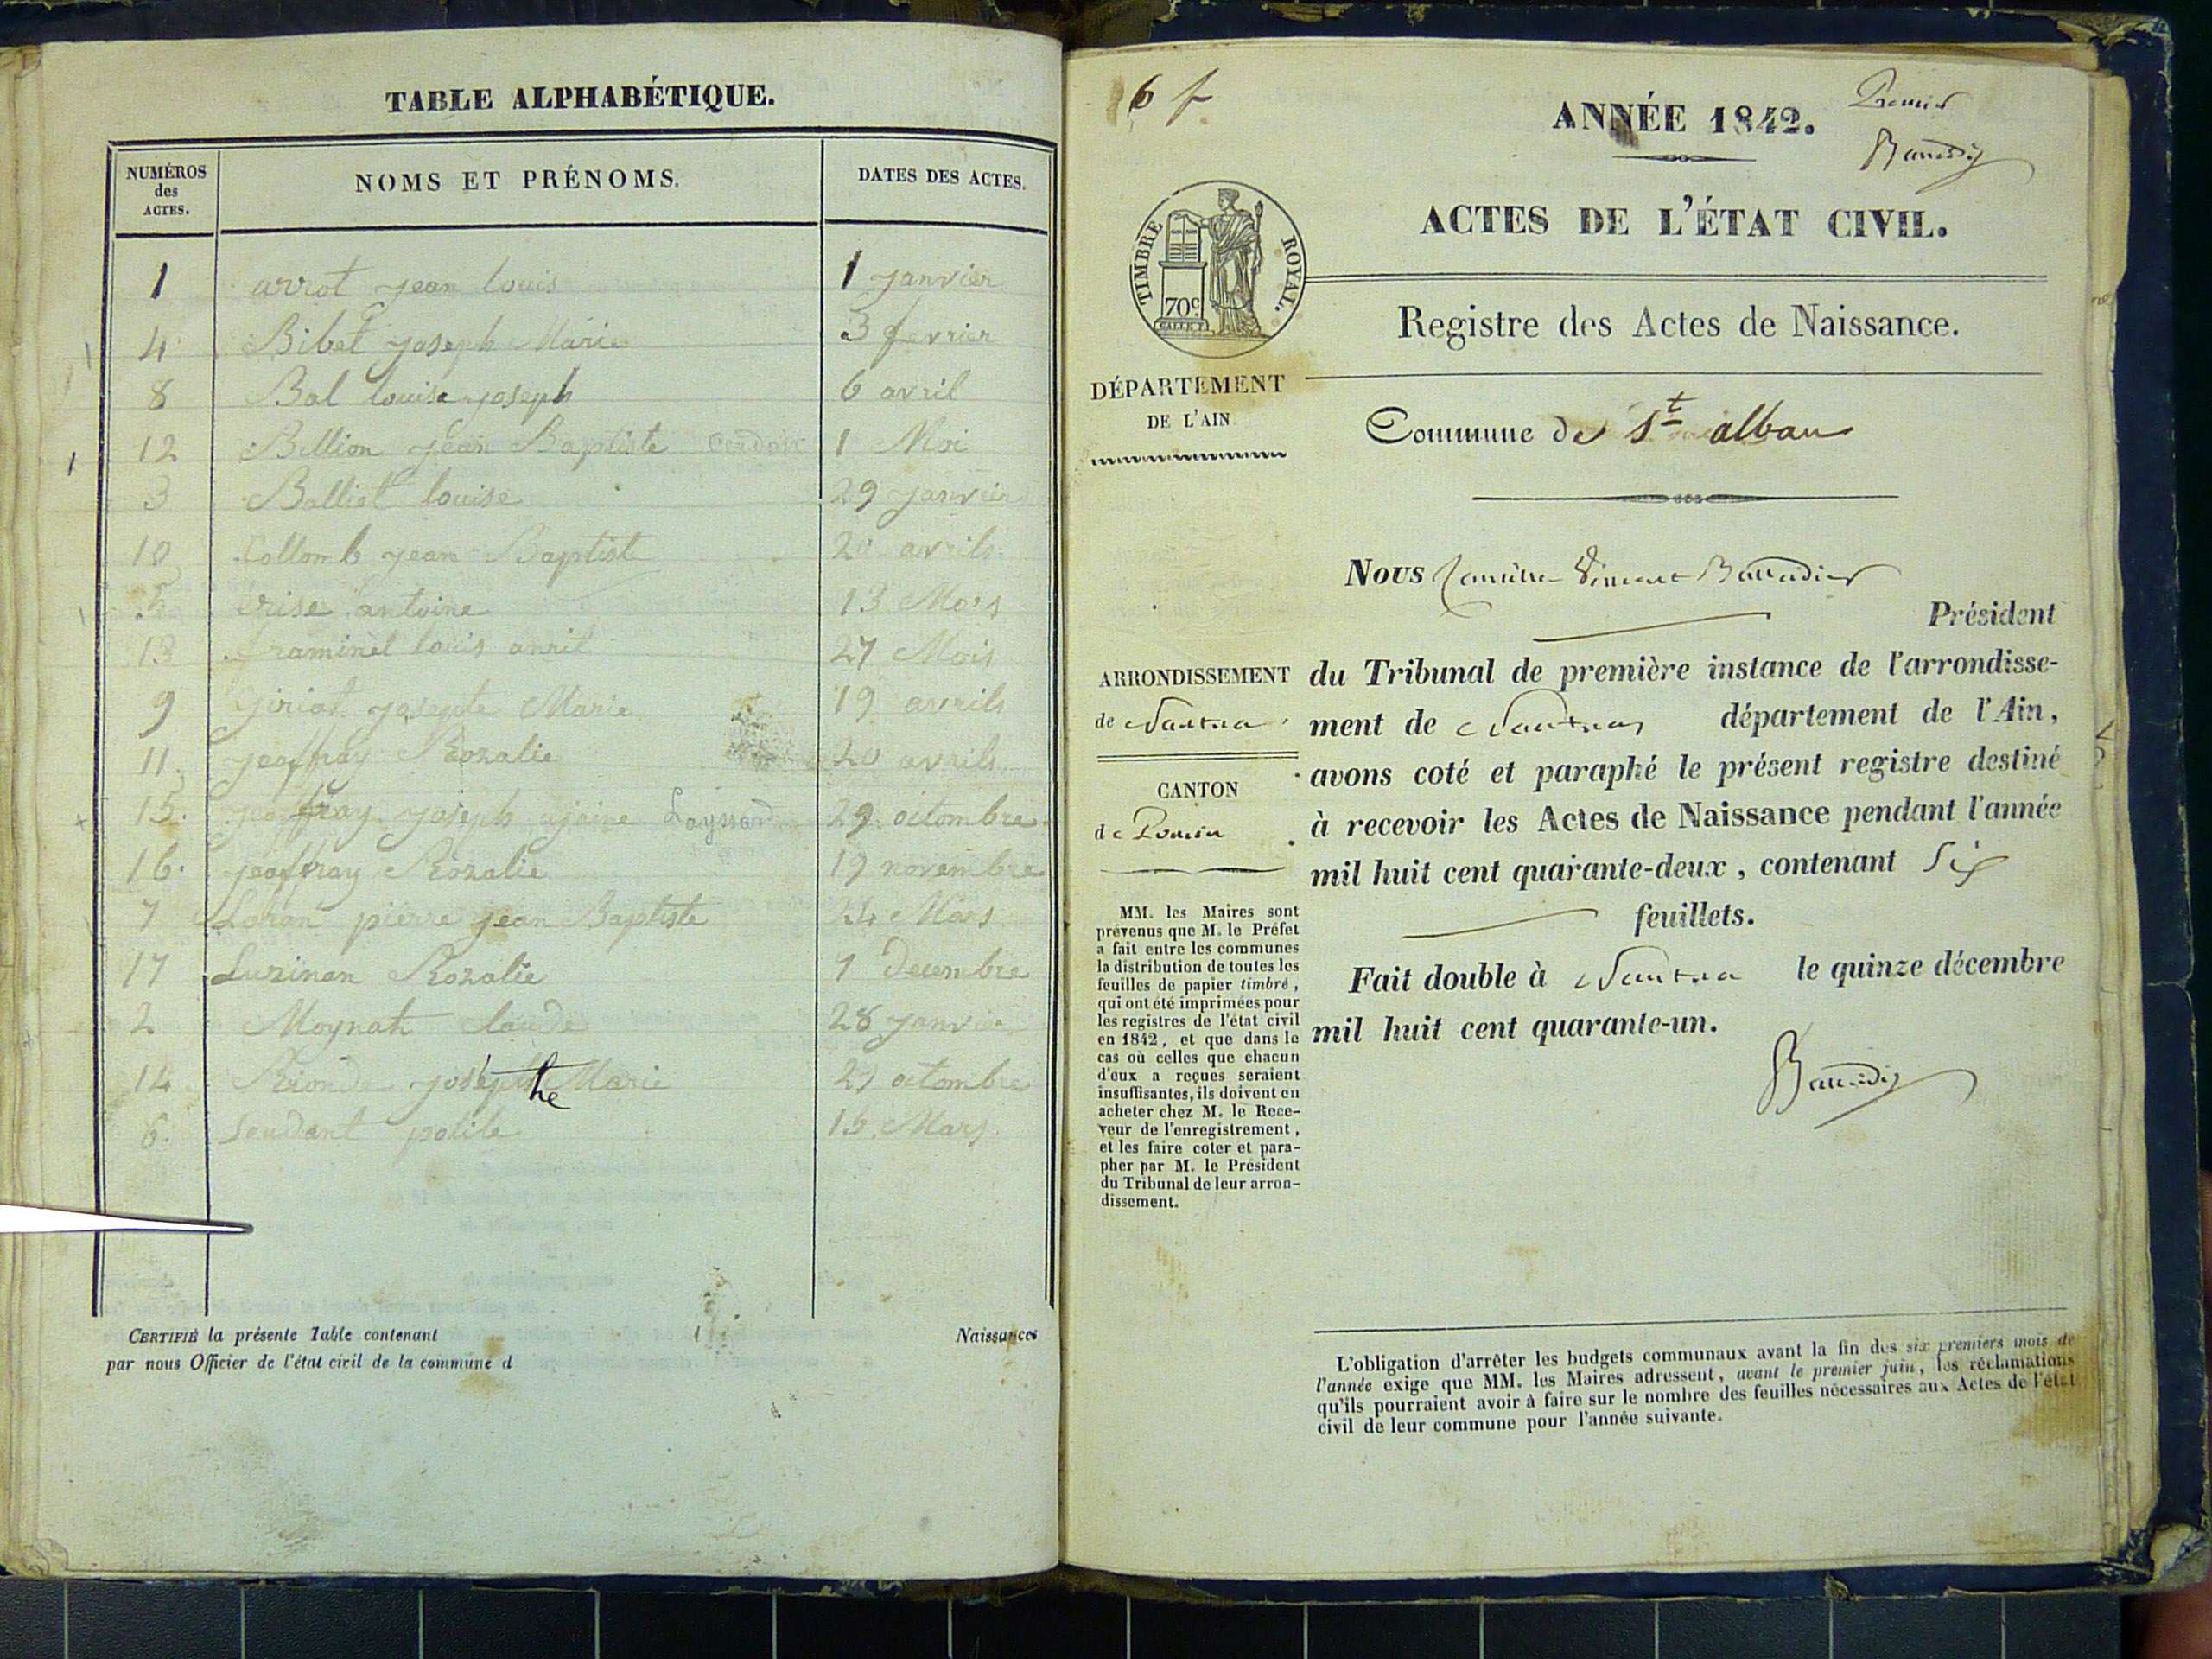 TABLE ALPHABÉTIQUE.
NUMÉROS
des
ACTES.
NOMS ET PRÉNOMS.
DATES DES ACTES.
1 arrot jean louis 1 janvier
4 Bibet joseph Marie 3 fevrier
8 Bal louise joseph 6 avril
12 Billion jean Baptiste 1 Mai
3 Balliet louise 29 janvier
10 Collomb jean Baptiste 20 avrils
5 crise antoine 13 Mars
13 framinet louis 27 Mais
9 Giriat josepte Marie 19 avrils
11 jeoffray Rozalie 20 avrils
15. jeoffray joseph 29 octombre
16. jeoffray Rozalie 19 novembre
7 Loran pierre jean Baptiste 24 Mars
17 Luzinan Rozalie 7 Decembre
2 Moynat claude 28 janvier
14 Rionde josephthe Marie 29 octombre
6. Soudant polite 15 Mars
CERTIFIÉ la présente Table contenant Naissances
par nous Officier de l'état civil de la commune d
6 f
ANNÉE 1842.
Premier
ACTES DE L'ÉTAT CIVIL.
TIMBRE ROYAL.
70c
Registre des Actes de Naissance.
DÉPARTEMENT
DE L'AIN
Commune de St alban
Nous
Président
ARRONDISSEMENT
de Nantua
CANTON
de Poncin
du Tribunal de première instance de l'arrondisse-
ment de Nantua département de l'Ain,
avons coté et paraphé le présent registre destiné
à recevoir les Actes de Naissance pendant l'année
mil huit cent quarante-deux, contenant Six
feuillets.
Fait double à Nantua le quinze décembre
mil huit cent quarante-un.
MM. les Maires sont
prévenus que M. le Préfet
a fait entre les communes
la distribution de toutes les
feuilles de papier timbré,
qui ont été imprimées pour
les registres de l'état civil
en 1842, et que dans le
cas où celles que chacun
d'eux a reçues seraient
insuffisantes, ils doivent en
acheter chez M. le Rece-
veur de l'enregistrement,
et les faire coter et para-
pher par M. le Président
du Tribunal de leur arron-
dissement.
L'obligation d'arrêter les budgets communaux avant la fin des six premiers mois de
l'année exige que MM. les Maires adressent, avant le premier juin, les réclamations
qu'ils pourraient avoir à faire sur le nombre des feuilles nécessaires aux Actes de l'état
civil de leur commune pour l'année suivante.